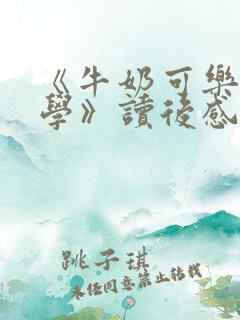 《牛奶可樂
學》讀後感
跳子琪
未經同意禁止轉載